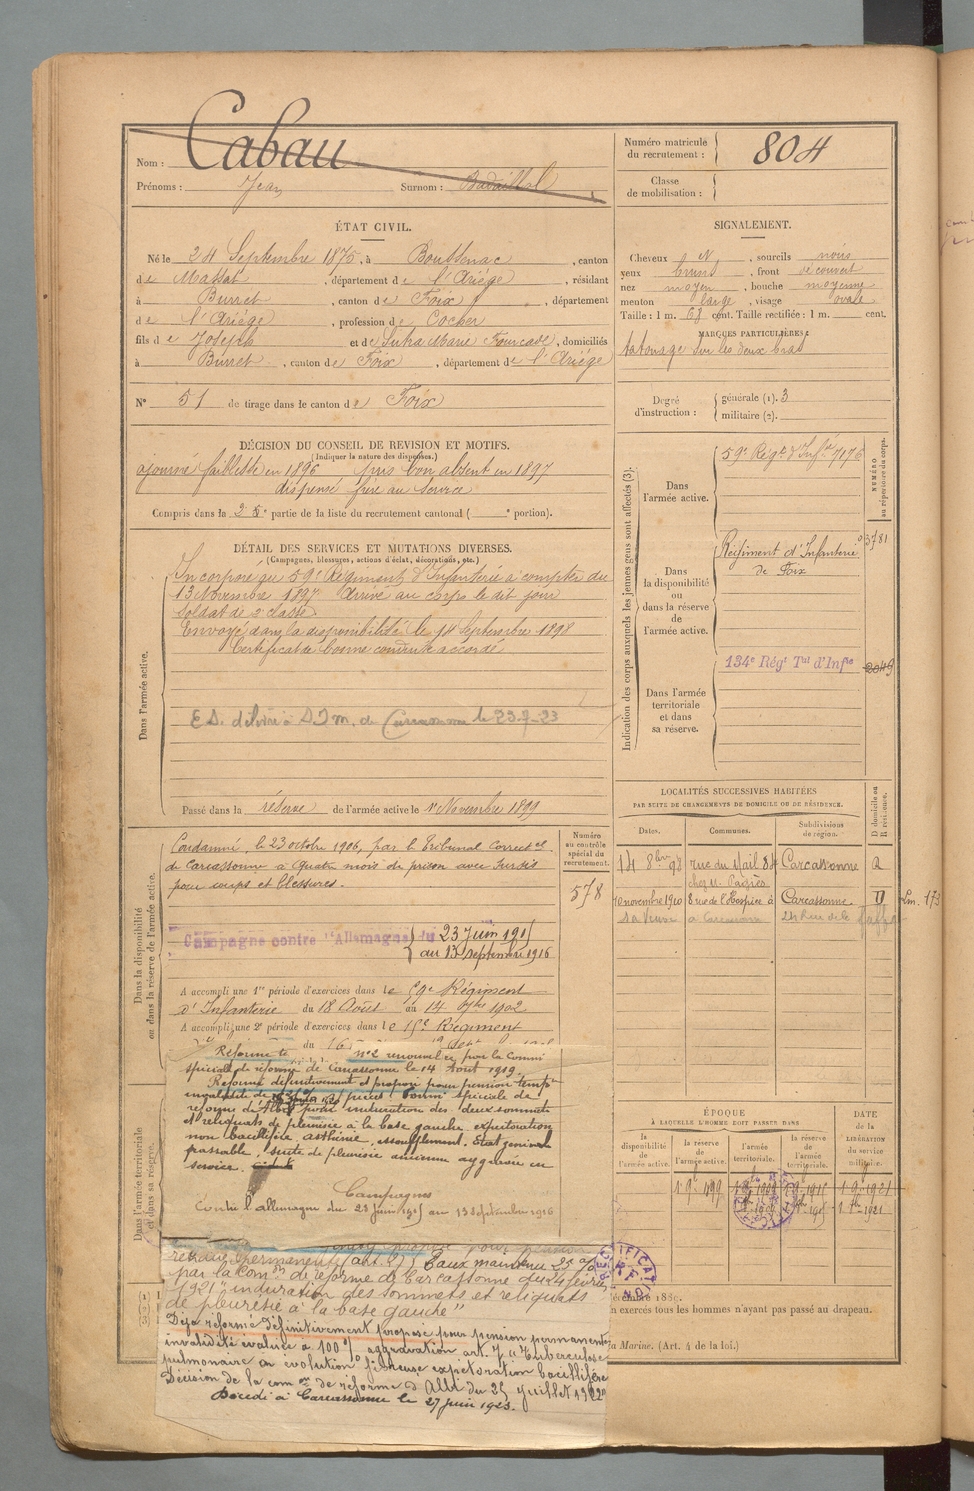 Nom : Cabau
Prénoms : Jean Surnom :
Numéro matricule du recrutement : 804
Classe de mobilisation :
ÉTAT CIVIL.
Né le 24 Septembre 1875, à Boussenac, canton
de Massat, département de l'Ariège, résidant
à Burret, canton de Foix, département
de l'Ariège, profession de Cocher
fils de Joseph et de Sutra Marie Fourcade, domiciliés
à Burret, canton de Foix, département de l'Ariège
N° 51 de tirage dans le canton de Foix
SIGNALEMENT.
Cheveux N, sourcils noirs
yeux bruns, front découvert
nez moyen, bouche moyenne
menton large, visage ovale
Taille : 1 m. 68 cent. Taille rectifiée : 1 m. cent.
MARQUES PARTICULIÈRES :
tatouage sur les deux bras
Degré d'instruction : générale (1). 3
militaire (2).
DÉCISION DU CONSEIL DE REVISION ET MOTIFS.
(Indiquer la nature des dispenses.)
ajourné faiblesse en 1896 pris bon absent en 1897
dispensé frère au service
Compris dans la 2e partie de la liste du recrutement cantonal ( e portion).
DÉTAIL DES SERVICES ET MUTATIONS DIVERSES.
(Campagnes, blessures, actions d'éclat, décorations, etc.)
Dans l'armée active.
Incorporé au 59e Régiment d'Infanterie à compter du
13 Novembre 1897 Arrivé au corps le dit jour
Soldat de 2e classe
Envoyé dans la disponibilité le 14 Septembre 1898
Certificat de bonne conduite accordé
de Carcassonne le 23-7-23
Passé dans la réserve de l'armée active le 1r Novembre 1899
Indication des corps auxquels les jeunes gens sont affectés (3).
NUMÉRO au répertoire du corps.
Dans l'armée active.
59e Régt d'Infie 7176
Dans la disponibilité ou dans la réserve de l'armée active.
Régiment d'Infanterie 3781
de Foix
Dans l'armée territoriale et dans sa réserve.
134e Régt Tal d'Infie 2045
LOCALITÉS SUCCESSIVES HABITÉES
PAR SUITE DE CHANGEMENTS DE DOMICILE OU DE RÉSIDENCE.
Dates. Communes. Subdivisions de région. D domicile ou R résidence.
14 8bre 98 rue du Mail 84 Carcassonne R
chez M. Pagès
10 novembre 1910 8 rue de l'Hospice à Carcassonne D
sa veuve à Carcassonne 24 Rue de
Dans la disponibilité ou dans la réserve de l'armée active.
Numéro au contrôle spécial du recrutement.
578
Condamné, le 23 octobre 1906, par le Tribunal Correctel
de Carcassonne à Quatre mois de prison avec sursis
pour coups et blessures.
Campagne contre l'Allemagne du 23 Juin 1915
au 13 septembre 1916
A accompli une 1re période d'exercices dans le 59e Régiment
d'Infanterie du 18 Août au 14 7bre 1902
A accompli une 2e période d'exercices dans le 15e Régiment
du 16
Réformé n°2 renouvelé, par la Commn
spéciale de réforme de Carcassonne le 14 Août 1919.
Réformé définitivement et proposé pour pension tempre
invalidité de
réforme d'Albi pour induration des deux sommets
et reliquats de pleurésie à la base gauche, expectoration
non bacillifère, asthénie, essoufflement. Etat général
passable, suite de pleurésie ancienne aggravée en
service.
Dans l'armée territoriale et dans sa réserve.
Campagnes
Contre l'allemagne du 23 juin 1915 au 13 septembre 1916
ÉPOQUE
À LAQUELLE L'HOMME DOIT PASSER DANS
la disponibilité de l'armée active. la réserve de l'armée active. l'armée territoriale. la réserve de l'armée territoriale.
DATE de la LIBÉRATION du service militaire.
permanent (art. 2) Taux maintenu 25 %
par la Comon de réforme de Carcassonne du 24 février
1921 "induration des sommets et reliquats
de pleurésie à la base gauche"
Déjà réformé définitivement proposé pour pension permanente
invalidité évaluée à 100 % aggravation art. 7 "Tuberculose
pulmonaire en évolution fibreuse expectoration bacillifère
Décision de la comon de réforme d'Albi du 25 juillet 1922
Décédé à Carcassonne le 27 juin 1923.
n exercés tous les hommes n'ayant pas passé au drapeau.
la Marine. (Art. 4 de la loi.)